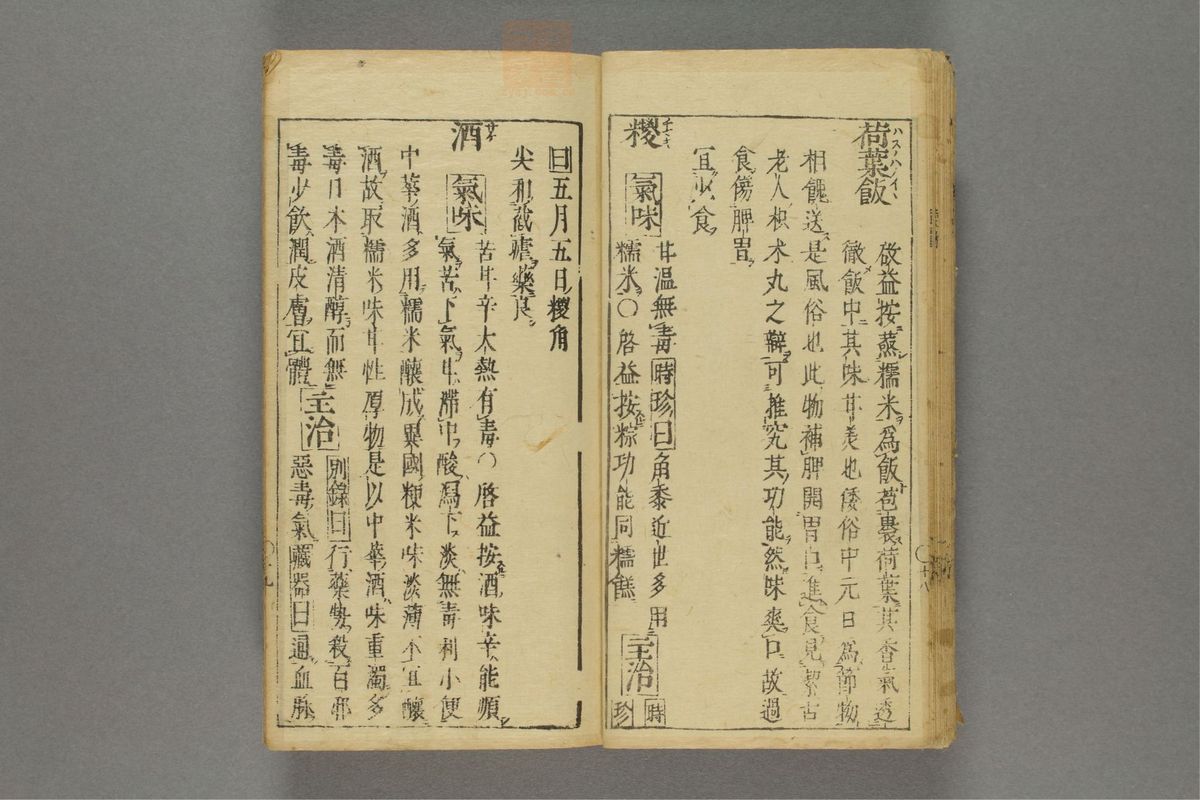 荷葉飯
ハスノハノイヽ
啟益按蒸糯米爲飯苞裹荷葉其香氣透
徹飯中其味甘美也倭俗中元日爲節物
相餽送是風俗也此物補脾開胃口進食見絜古
老人枳朮丸之辯可推究其功能然味爽口故過
食傷脾胃
宜少食
糉
チマキ
氣味
甘温無毒時珍曰角黍近世多用
糯米〇啓益按粽功能同糯餻
主治
時
珍
曰五月五日糉角
尖和截瘧藥良
酒
サケ
氣味
苦甘辛大熱有毒〇啓益按酒味辛能順
氣苦下氣甘滯中酸瀉下淡無毒利小便
中華酒多用糯米釀成異國粳米味淡薄不宜釀
酒故取糯米味甘性厚物是以中華酒味重濁多
毒日本酒清醇而無
毒少飲潤皮膚宜體
主治
別錄曰行藥勢殺百邪
惡毒氣藏器曰通血脉